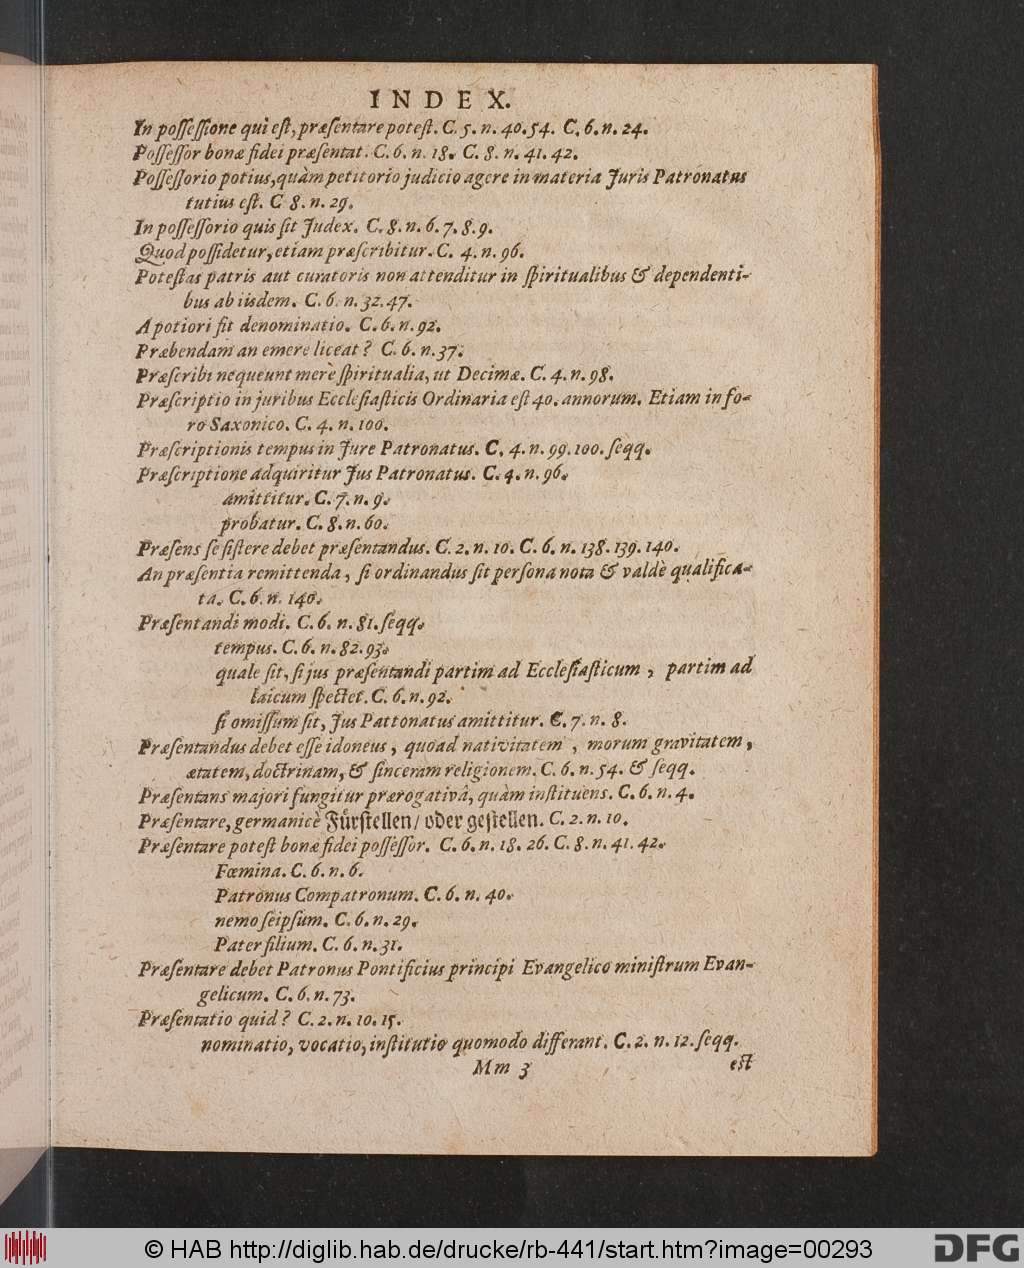 INDEX.
In possessione qui est, præsentare potest. C. 5. n. 40. 54. C. 6. n. 24.
Possessor bonæ fidei præsentat. C. 6. n. 18. C. 8. n. 41. 42.
Possessorio potius, quàm petitorio judicio agere in materia Juris Patronatus
tutius est. C 8. n. 29.
In possessorio quis sit Judex. C. 8. n. 6. 7. 8. 9.
Quod possidetur, etiam præscribitur. C. 4. n. 96.
Potestas patris aut curatoris non attenditur in spiritualibus & dependenti-
bus ab iisdem. C. 6. n. 32. 47.
A potiori fit denominatio. C. 6. n. 92.
Præbendam an emere liceat? C. 6. n. 37.
Præscribi nequeunt merè spiritualia, ut Decimæ. C. 4. n. 98.
Præscriptio in juribus Ecclesiasticis Ordinaria est 40. annorum. Etiam in fo-
ro Saxonico. C. 4. n. 100.
Præscriptionis tempus in Jure Patronatus. C. 4. n. 99. 100. seqq.
Præscriptione adquiritur Jus Patronatus. C. 4. n. 96.
amittitur. C. 7. n. 9.
probatur. C. 8. n. 60.
Præsens se sistere debet præsentandus. C. 2. n. 10. C. 6. n. 138. 139. 140.
An præsentia remittenda, si ordinandus sit persona nota & valdè qualifica-
ta. C. 6. n. 140.
Præsentandi modi. C. 6. n. 81. seqq.
tempus. C. 6. n. 82. 93.
quale sit, si jus præsentandi partim ad Ecclesiasticum, partim ad
laicum spectet. C. 6. n. 92.
si omissum sit, Jus Pattonatus amittitur. C. 7. n. 8.
Præsentandus debet esse idoneus, quoad nativitatem, morum gravitatem,
ætatem, doctrinam, & sinceram religionem. C. 6. n. 54. & seqq.
Præsentans majori fungitur prærogativâ, quàm instituens. C. 6. n. 4.
Præsentare, germanicè Fürstellen/ oder gestellen. C. 2. n. 10.
Præsentare potest bonæ fidei possessor. C. 6. n. 18. 26. C. 8. n. 41. 42.
Fœmina. C. 6. n. 6.
Patronus Compatronum. C. 6. n. 40.
nemo seipsum. C. 6. n. 29.
Pater filium. C. 6. n. 31.
Præsentare debet Patronus Pontificius principi Evangelico ministrum Evan-
gelicum. C. 6. n. 73.
Præsentatio quid? C. 2. n. 10. 15.
nominatio, vocatio, institutio quomodo differant. C. 2. n. 12. seqq.
Mm 3 est
© HAB http://diglib.hab.de/drucke/rb-441/start.htm?image=00293
DFG